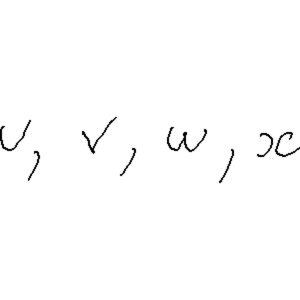 u, v, w, x